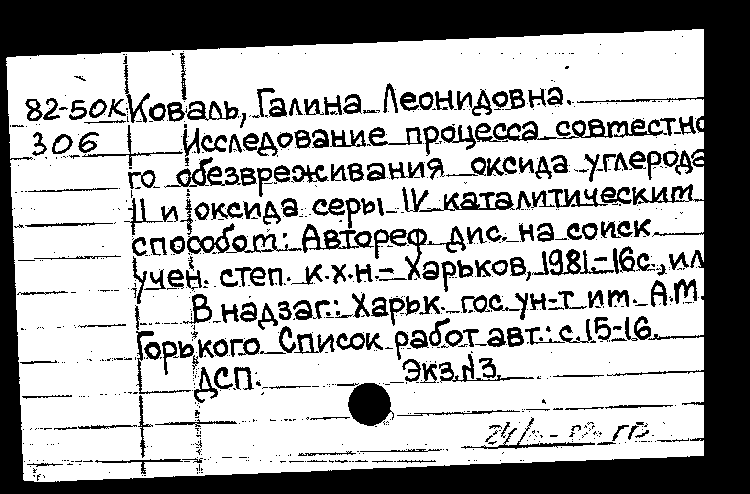 82-50К Коваль, Галина Леонидовна.
306 Исследование процесса совместно
го обезвреживания оксида углерода
II и оксида серы IV каталитическим
способом: Автореф. дис. на соиск.
учен. степ. к.х.н.- Харьков, 1981.-16с., ил
В надзаг.: Харьк. гос. ун-т им. А.М.
Горького. Список работ авт.: с.15-16.
ДСП. Экз.№3.